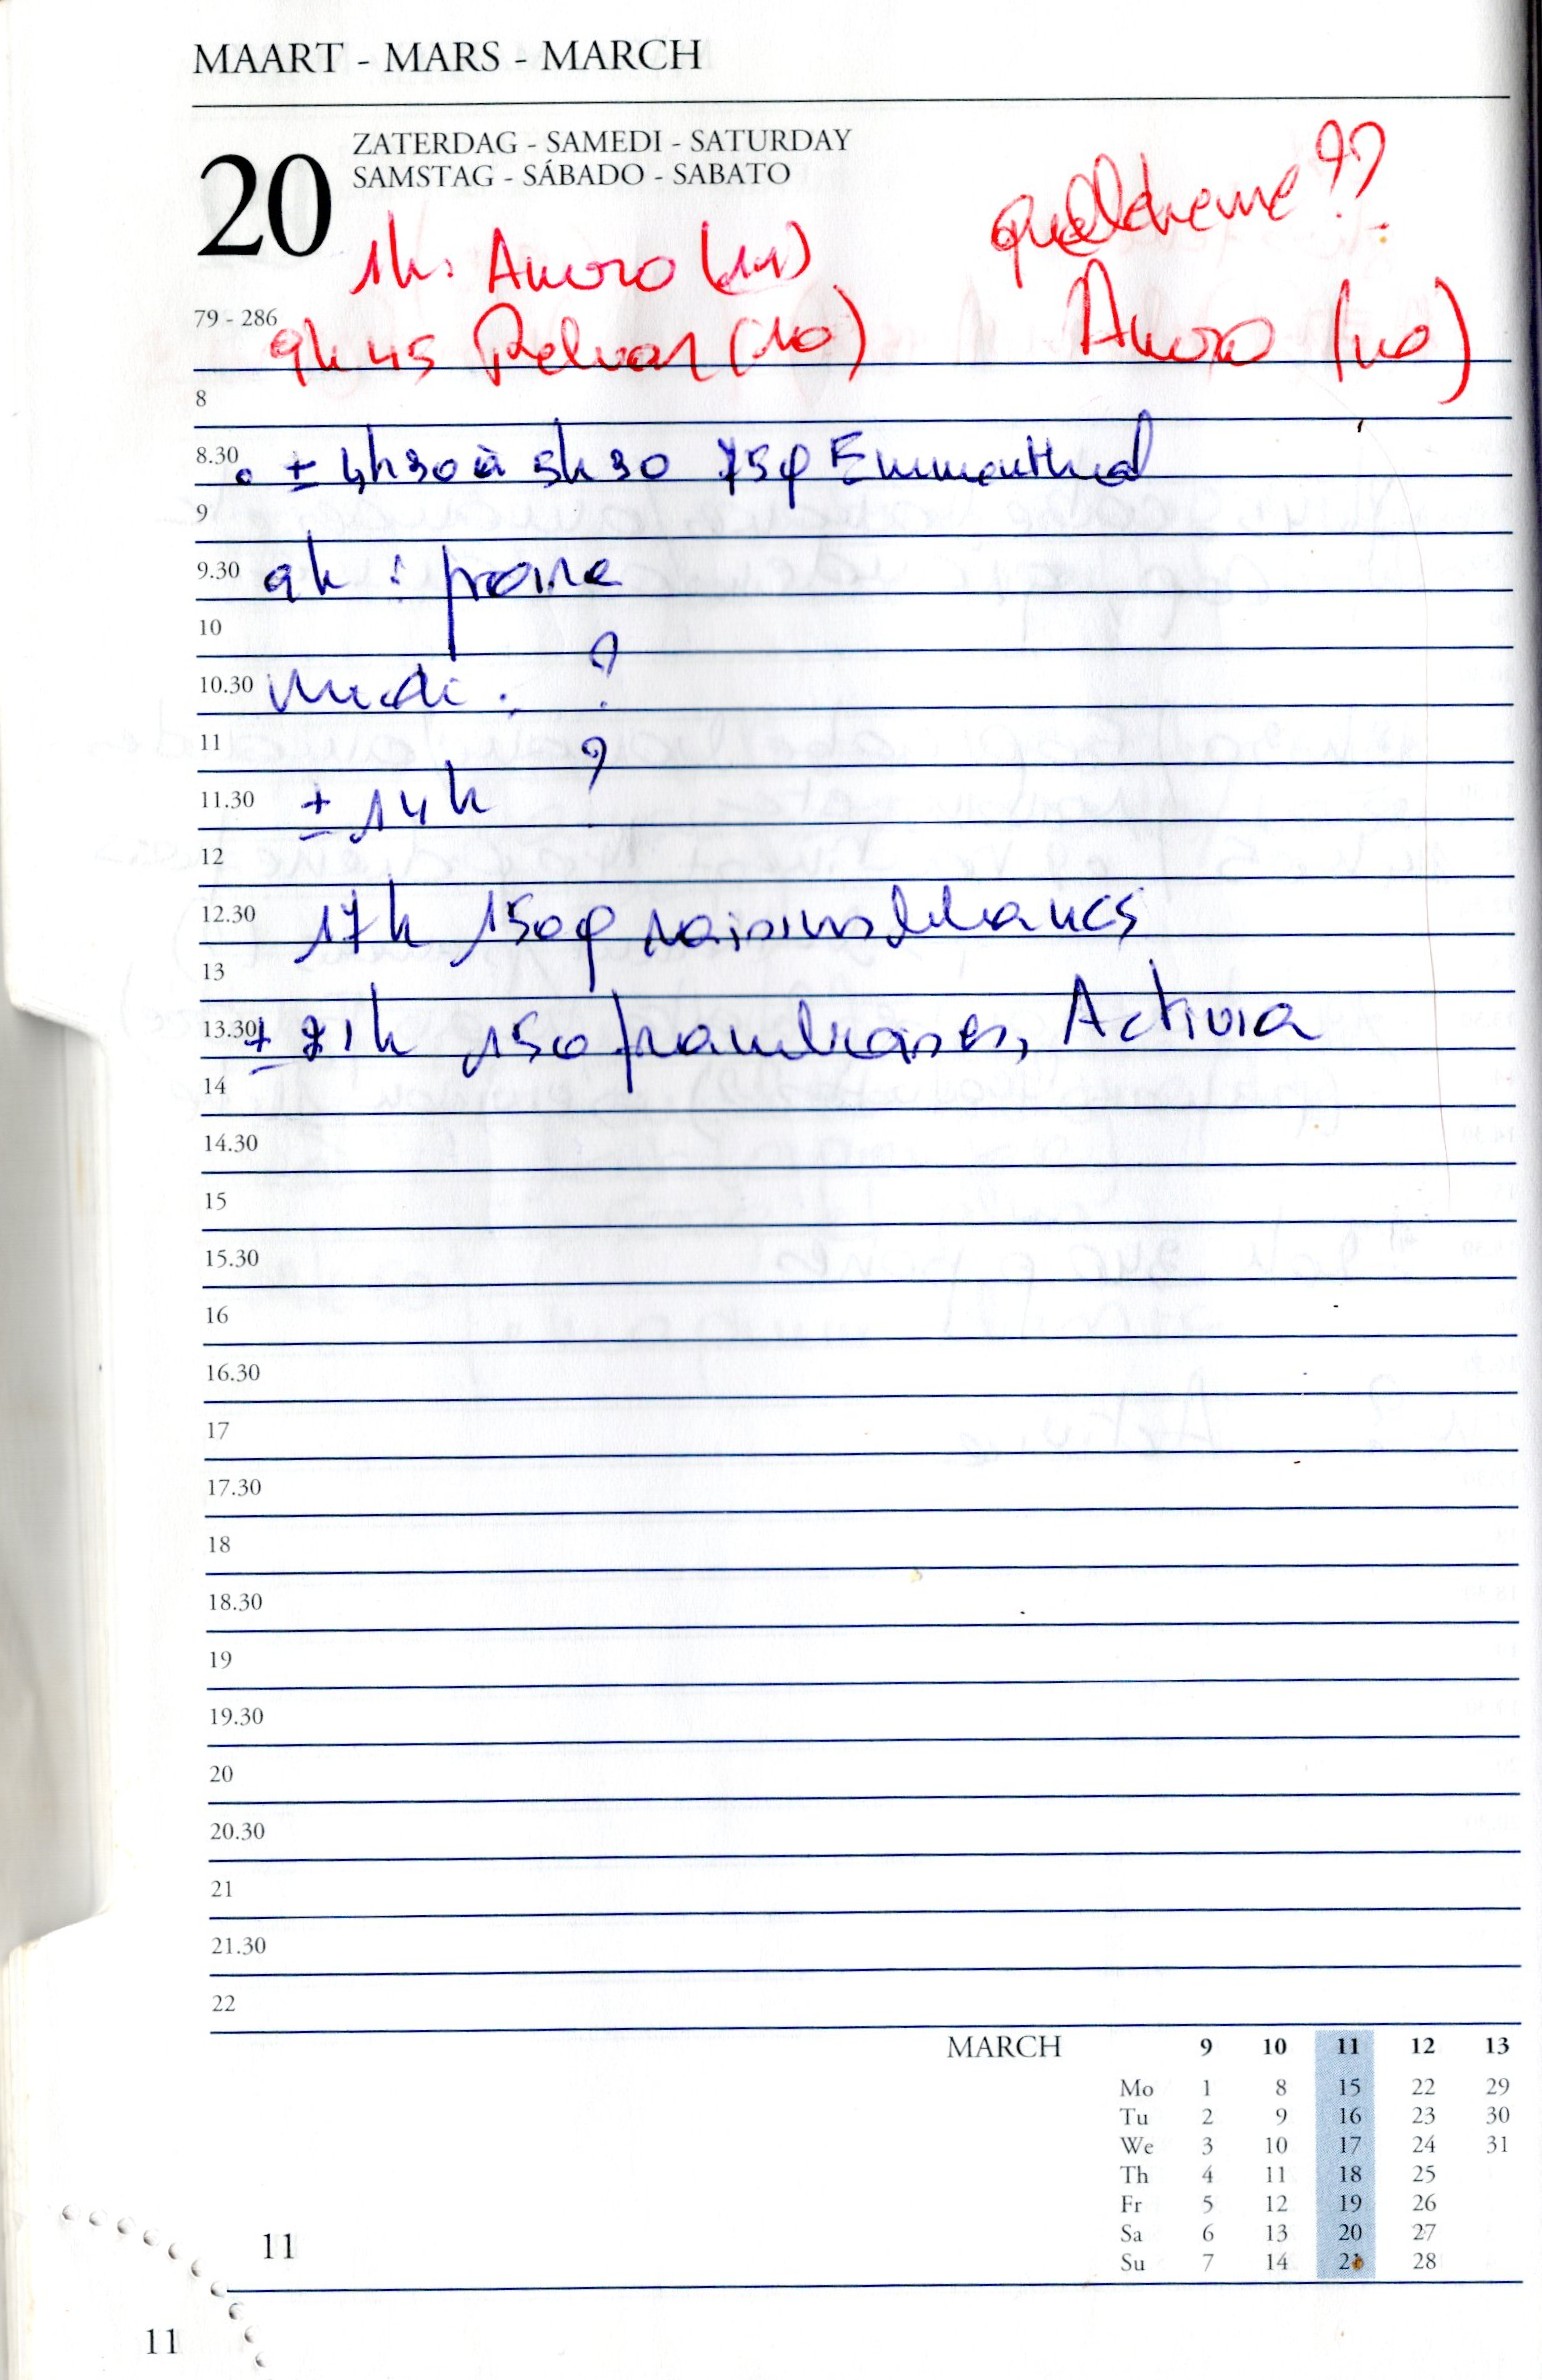 MAART - MARS - MARCH
20
ZATERDAG - SAMEDI - SATURDAY
SAMSTAG - SÁBADO - SABATO
79 - 286
1h: (11)
quelcheure ??
9h45 (10)
(10)
8
8.30 ± 4h30 à 5h30 75g Emmenthal
9
9.30 9h : poire
10
10.30 midi : ?
11
11.30 ± 14h ?
12
12.30 17h 150g raisins blancs
13
13.30 ± 21h 150 framboises, Activia
14
14.30
15
15.30
16
16.30
17
17.30
18
18.30
19
19.30
20
20.30
21
21.30
22
MARCH 9 10 11 12 13
Mo 1 8 15 22 29
Tu 2 9 16 23 30
We 3 10 17 24 31
Th 4 11 18 25
Fr 5 12 19 26
Sa 6 13 20 27
Su 7 14 21 28
11
11